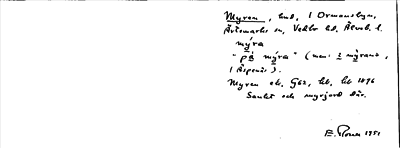 Myren, hmd, i Ormansbyn,
Ärtemarks sn, Vedbo hd, Älvsb. l.
myra
"på myra" (men: 2 myrane,
i Äspenäs).
Myren ek. G62, bt, bt 1896
Sankt och myrjord där.
E. Rosen 1951